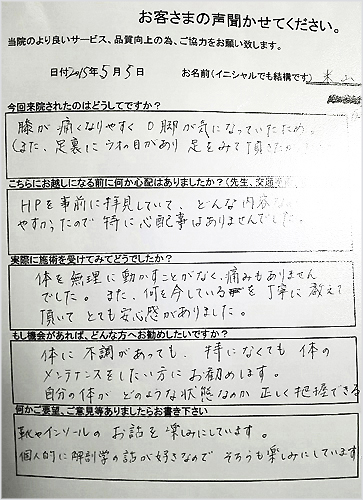 お客さまの声聞かせてください。
当院のより良いサービス、品質向上の為、ご協力をお願い致します。
日付 2015年5月5日 お名前(イニシャルでも結構です)
今回来院されたのはどうしてですか?
膝が痛くなりやすく O脚が気になっていたため。
(また、足裏にウオの目があり 足をみて頂きたか
こちらにお越しになる前に何か心配はありましたか?(先生、交通
HPを事前に拝見していて、どんな内容な
やすかったので 特に心配事はありませんでした。
実際に施術を受けてみてどうでしたか?
体を無理に動かすことがなく、痛みもありません
でした。また、何を今しているを丁寧に教えて
頂いて とても安心感がありました。
もし機会があれば、どんな方へお勧めしたいですか?
体に不調があっても、特になくても 体の
メンテナンスをしたい方にお勧めします。
自分の体が どのような状態なのか 正しく把握できる
何かご要望、ご意見等ありましたらお書き下さい
靴やインソールの お話を 楽しみにしています。
個人的に解剖学の話が好きなので そちらも楽しみにしています